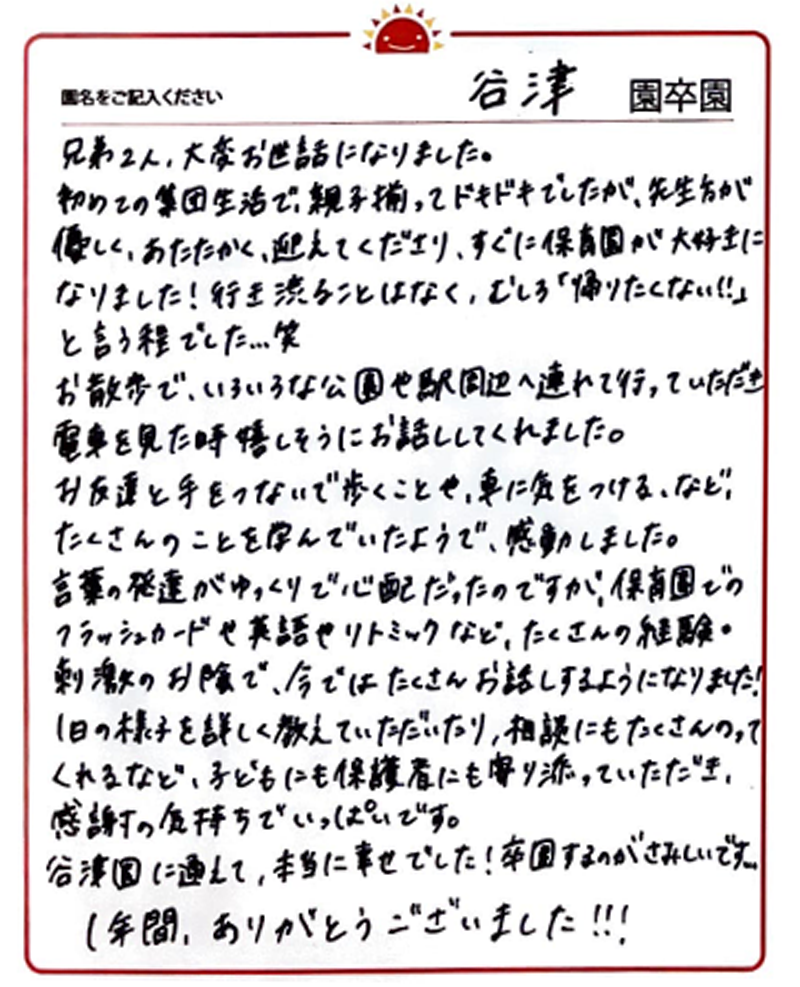 園名をご記入ください
谷津 園卒園
兄弟2人、大変お世話になりました。
初めての集団生活で、親子揃ってドキドキでしたが、先生方が
優しく、あたたかく、迎えてくださり、すぐに保育園が大好きに
なりました!行き渋ることはなく、むしろ「帰りたくない!!」
と言う程でした…笑
お散歩で、いろいろな公園や駅周辺へ連れて行っていただき
電車を見た時嬉しそうにお話ししてくれました。
お友達と手をつないで歩くことや、車に気をつける、など、
たくさんのことを学んでいたようで、感動しました。
言葉の発達がゆっくりで心配だったのですが、保育園での
フラッシュカードや英語やリトミックなど、たくさんの経験・
刺激のお陰で、今ではたくさんお話しするようになりました!
1日の様子を詳しく教えていただいたり、相談にもたくさんのって
くれるなど、子どもにも保護者にも寄り添っていただき、
感謝の気持ちでいっぱいです。
谷津園に通えて、本当に幸せでした!卒園するのがさみしいです…
1年間、ありがとうございました!!!